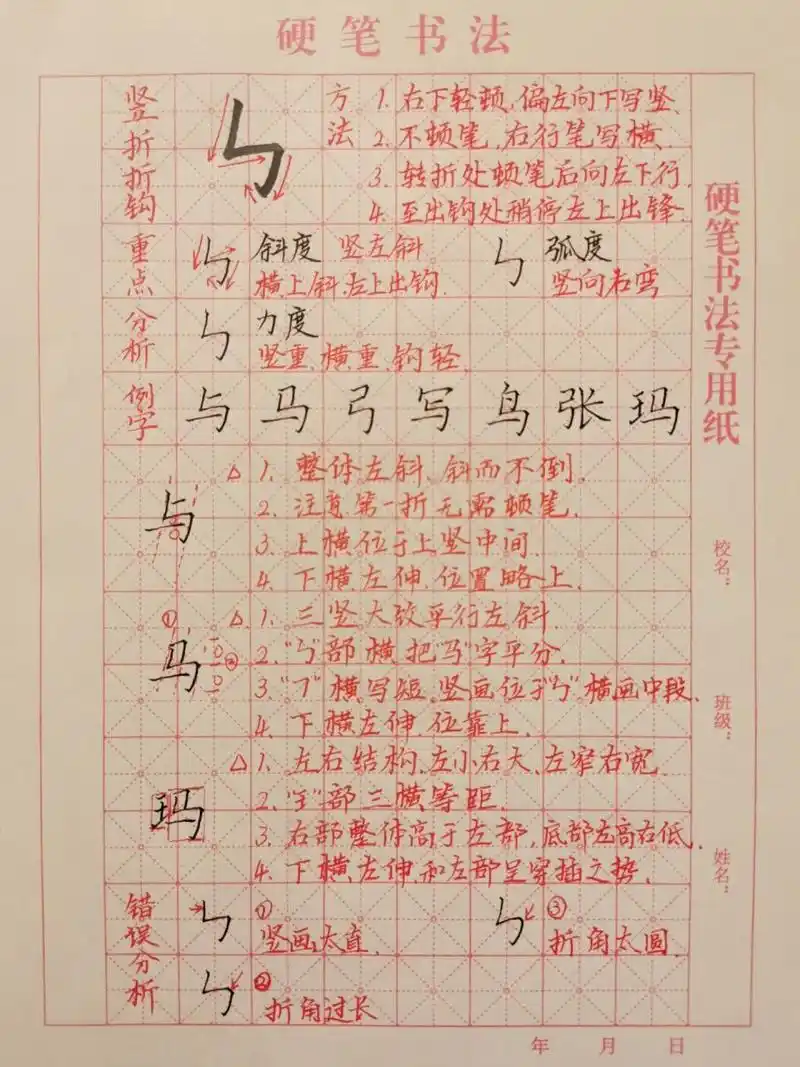 硬笔书法
竖折折钩
ㄣ
方法
1. 右下轻顿,偏左向下写竖、
2. 不顿笔,右行笔写横、
3. 转折处顿笔后向左下行.
4. 至出钩处稍停左上出锋.
重点
斜度 竖左斜
横上斜、左上出钩.
弧度
竖向右弯
分析
力度
竖重、横重、钩轻、
例字
与 马 弓 写 鸟 张 玛
与
△ 1. 整体左斜、斜而不倒。
2. 注意第一折无需顿笔、
3. 上横位于上竖中间.
4. 下横左伸、位置略上、
马
① ②
△ 1. 三竖大致平行左斜
2. "ㄣ"部横把"马"字平分.
3. "㇕"横写短、竖画位于"ㄣ"横画中段、
4. 下横左伸、位靠上、
玛
△ 1. 左右结构、左小右大、左窄右宽
2. "王"部三横等距.
3. 右部整体高于左部,底部左高右低、
4. 下横左伸、和左部呈穿插之势、
错误分析
① 竖画太直、
③ 折角太圆、
② 折角过长
硬笔书法专用纸
校名:
班级:
姓名:
年 月 日